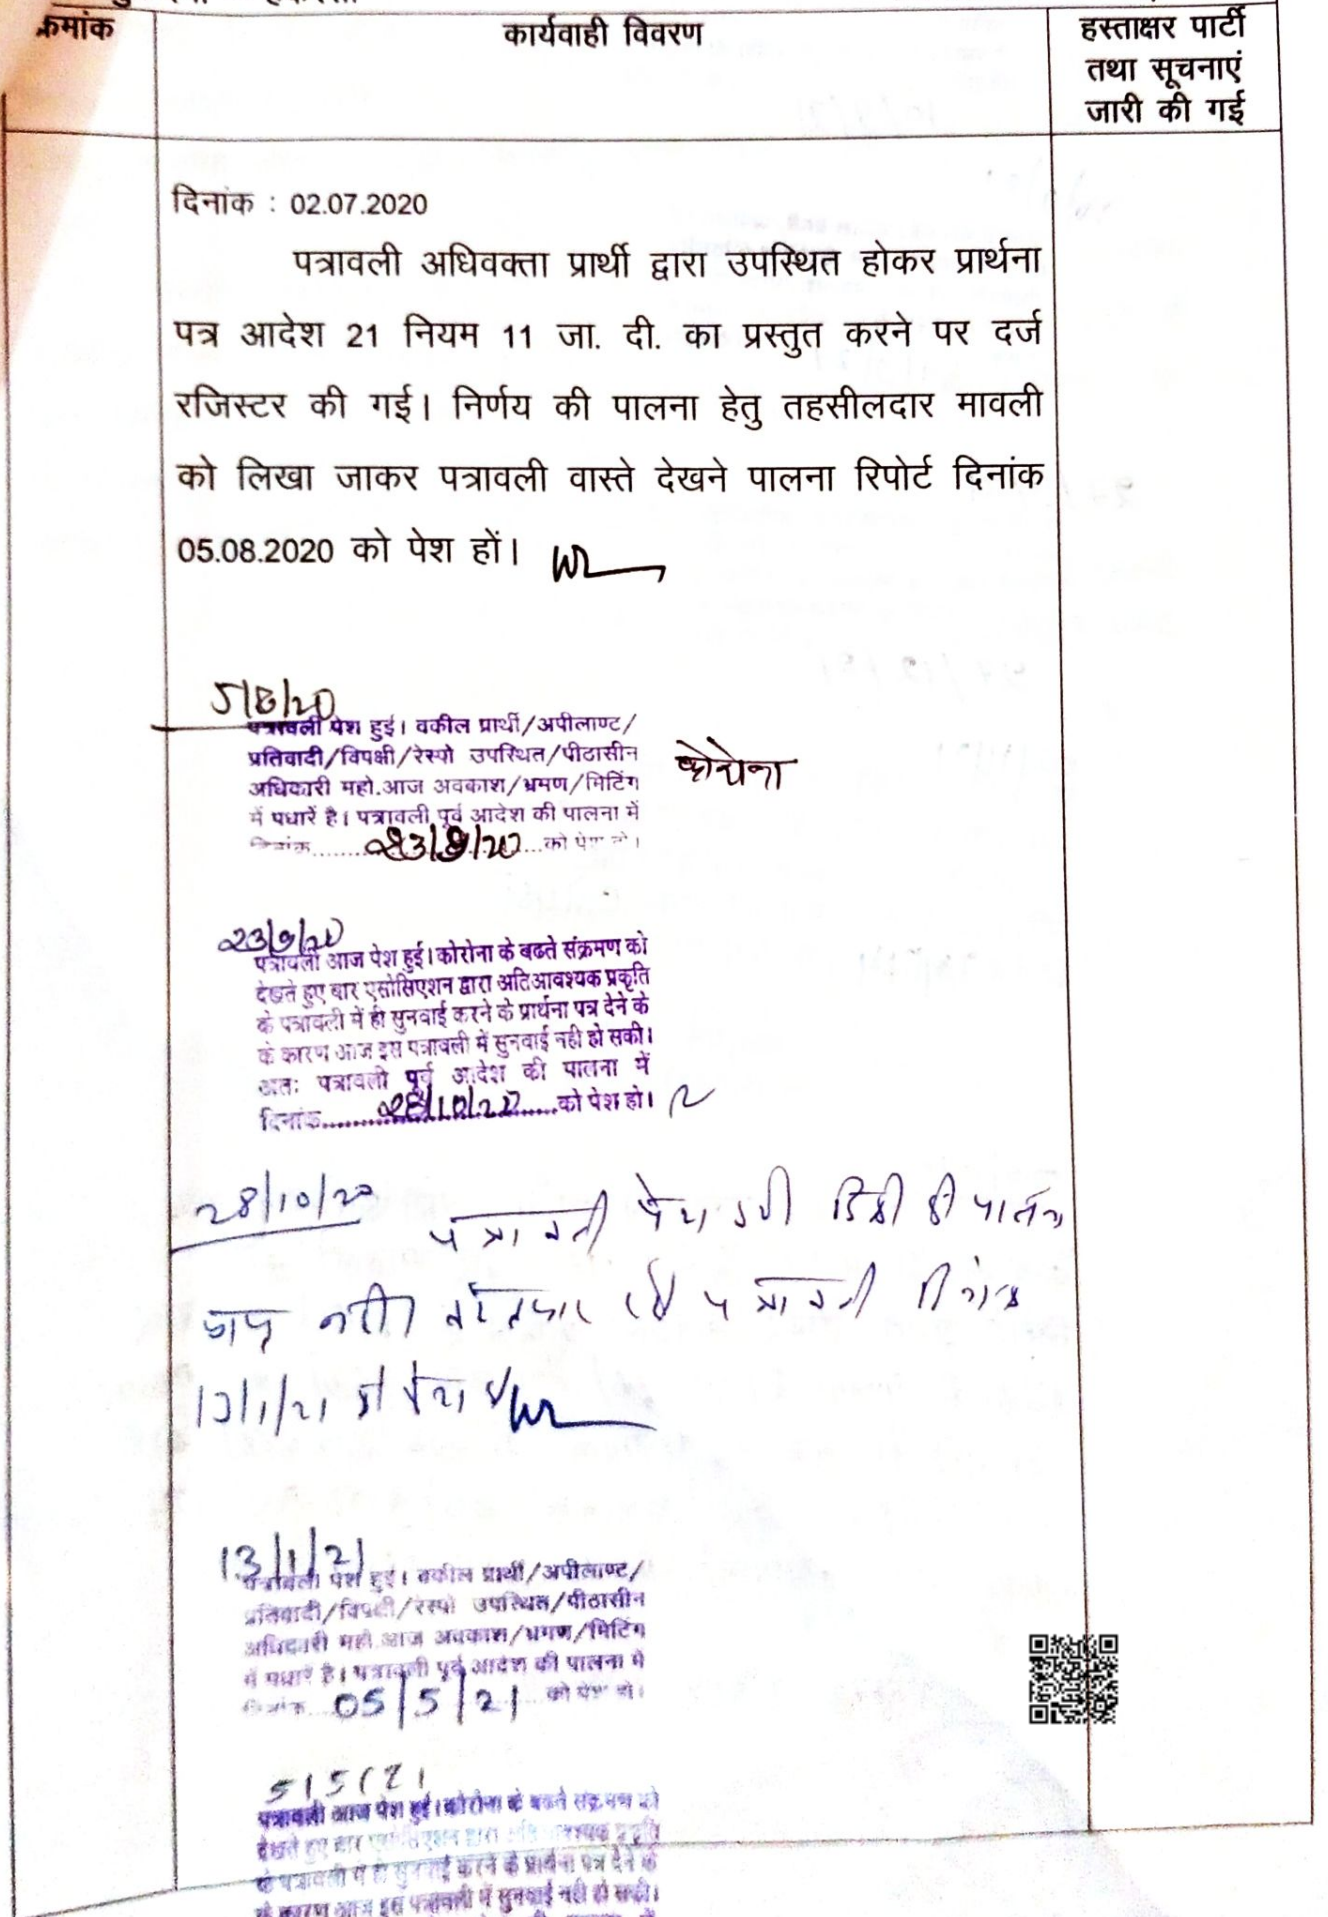 क्रमांक
कार्यवाही विवरण
हस्ताक्षर पार्टी
तथा सूचनाएं
जारी की गई
दिनांक : 02.07.2020
पत्रावली अधिवक्ता प्रार्थी द्वारा उपस्थित होकर प्रार्थना
पत्र आदेश 21 नियम 11 जा. दी. का प्रस्तुत करने पर दर्ज
रजिस्टर की गई। निर्णय की पालना हेतु तहसीलदार मावली
को लिखा जाकर पत्रावली वास्ते देखने पालना रिपोर्ट दिनांक
05.08.2020 को पेश हों।
5/8/20
पत्रावली पेश हुई। वकील प्रार्थी/अपीलाण्ट/
प्रतिवादी/विपक्षी/रेस्पो उपस्थित/पीठासीन
अधिकारी महो.आज अवकाश/भ्रमण/मिटिंग
में पधारें है। पत्रावली पूर्व आदेश की पालना में
दिनांक.......23/9/20...को पेश हो।
23/9/20
पत्रावली आज पेश हुई। कोरोना के बढते संक्रमण को
देखते हुए बार एसोसिएशन द्वारा अतिआवश्यक प्रकृति
के पत्रावली में ही सुनवाई करने के प्रार्थना पत्र देने के
के कारण आज इस पत्रावली में सुनवाई नही हो सकी।
अतः पत्रावली पूर्व आदेश की पालना में
दिनांक.......28/10/20.......को पेश हो।
28/10/20 पत्रावली पेश हुयी डिक्री की पालना
नही पत्रावली दिनांक
13/1/21 को पेश हो
13/1/21
पत्रावली पेश हुई। वकील प्रार्थी/अपीलाण्ट/
प्रतिवादी/विपक्षी/रेस्पो उपस्थित/पीठासीन
अधिकारी महो.आज अवकाश/भ्रमण/मिटिंग
में पधारें है। पत्रावली पूर्व आदेश की पालना में
दिनांक...05/5/21 को पेश हो।
5/5/21
पत्रावली आज पेश हुई। कोरोना के बढते संक्रमण को
देखते हुए बार एसोसिएशन द्वारा प्रकृति
के पत्रावली में ही सुनवाई करने के प्रार्थना पत्र देने के
के कारण आज इस पत्रावली में सुनवाई नही हो सकी।